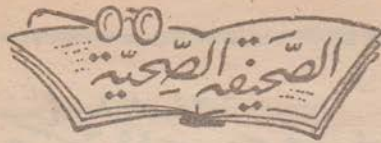 الصَّحيفة الصِّحيّة